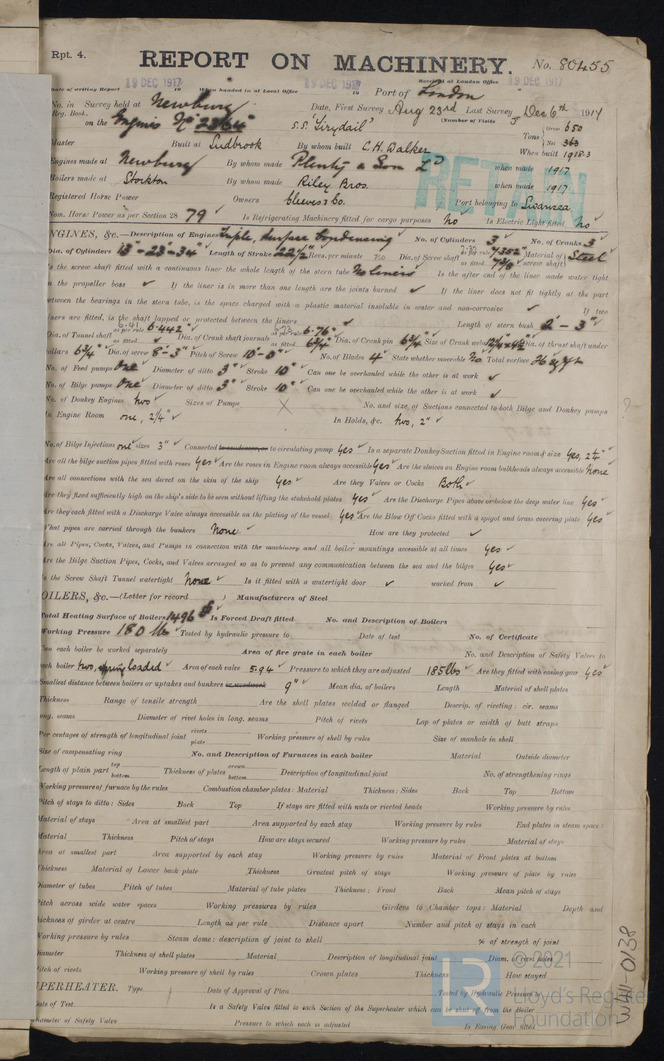 Rpt. 4.
REPORT ON MACHINERY. No. 80455
19 DEC 1917 19 DEC 1917 19 DEC 1917
Date of writing Report 19 When handed in at Local Office 19 Port of London
Received at London Office
No. in Survey held at Newbury Date, First Survey Aug 23rd Last Survey Dec 6th 1917
Reg. Book. (Number of Visits
on the Engines No S.S. "Tirydail" Tons Gross 650 Net 363
Master Built at Sudbrook By whom built C.H. Walker When built 1918.3
Engines made at Newbury By whom made Plenty & Son Ld when made 1917
Boilers made at Stockton By whom made Riley Bros. when made 1917
Registered Horse Power Owners Cleeves & Co. Port belonging to Swansea
Nom. Horse Power as per Section 28 79 Is Refrigerating Machinery fitted for cargo purposes No Is Electric Light fitted No
RETAIN
ENGINES, &c.—Description of Engines Triple, Surface Condensing No. of Cylinders 3 No. of Cranks 3
Dia. of Cylinders 13"-23"-34" Length of Stroke 22½" Revs. per minute Dia. of Screw shaft as per rule 7.352" as fitted Material of screw shaft Steel
Is the screw shaft fitted with a continuous liner the whole length of the stern tube No liners Is the after end of the liner made water tight
in the propeller boss If the liner is in more than one length are the joints burned If the liner does not fit tightly at the part
between the bearings in the stern tube, is the space charged with a plastic material insoluble in water and non-corrosive If two
liners are fitted, is the shaft lapped or protected between the liners Length of stern bush 2'-3"
Dia. of Tunnel shaft as per rule 6.442" as fitted Dia. of Crank shaft journals as per rule 6.76" as fitted 6¾" Dia. of Crank pin 6¾" Size of Crank webs Dia. of thrust shaft under
collars 6¾" Dia. of screw 8'-3" Pitch of Screw 10'-0" No. of Blades 4 State whether moveable No Total surface
No. of Feed pumps One Diameter of ditto 3" Stroke 10" Can one be overhauled while the other is at work
No. of Bilge pumps One Diameter of ditto 3" Stroke 10" Can one be overhauled while the other is at work
No. of Donkey Engines two Sizes of Pumps X No. and size, of Suctions connected to both Bilge and Donkey pumps
In Engine Room one, 2¼" In Holds, &c. two, 2"
No. of Bilge Injections one sizes 3" Connected to condenser, or to circulating pump Yes Is a separate Donkey Suction fitted in Engine room & size Yes, 2½"
Are all the bilge suction pipes fitted with roses Yes Are the roses in Engine room always accessible Yes Are the sluices on Engine room bulkheads always accessible None
Are all connections with the sea direct on the skin of the ship Yes Are they Valves or Cocks Both
Are they fixed sufficiently high on the ship's side to be seen without lifting the stokehold plates Yes Are the Discharge Pipes above or below the deep water line Yes
Are they each fitted with a Discharge Valve always accessible on the plating of the vessel Yes Are the Blow Off Cocks fitted with a spigot and brass covering plate Yes
What pipes are carried through the bunkers None How are they protected
Are all Pipes, Cocks, Valves, and Pumps in connection with the machinery and all boiler mountings accessible at all times Yes
Are the Bilge Suction Pipes, Cocks, and Valves arranged so as to prevent any communication between the sea and the bilges Yes
Is the Screw Shaft Tunnel watertight None Is it fitted with a watertight door worked from
BOILERS, &c.—(Letter for record ) Manufacturers of Steel
Total Heating Surface of Boilers 1496 Is Forced Draft fitted No. and Description of Boilers
Working Pressure 180 lbs Tested by hydraulic pressure to Date of test No. of Certificate
Can each boiler be worked separately Area of fire grate in each boiler No. and Description of Safety Valves to
each boiler two, spring loaded Area of each valve 5.94 Pressure to which they are adjusted 185 lbs Are they fitted with easing gear Yes
Smallest distance between boilers or uptakes and bunkers or woodwork 9" Mean dia. of boilers Length Material of shell plates
Thickness Range of tensile strength Are the shell plates welded or flanged Descrip. of riveting: cir. seams
long. seams Diameter of rivet holes in long. seams Pitch of rivets Lap of plates or width of butt straps
Per centages of strength of longitudinal joint rivets plate Working pressure of shell by rules Size of manhole in shell
Size of compensating ring No. and Description of Furnaces in each boiler Material Outside diameter
Length of plain part top bottom Thickness of plates crown bottom Description of longitudinal joint No. of strengthening rings
Working pressure of furnace by the rules Combustion chamber plates: Material Thickness: Sides Back Top Bottom
Pitch of stays to ditto: Sides Back Top If stays are fitted with nuts or riveted heads Working pressure by rules
Material of stays Area at smallest part Area supported by each stay Working pressure by rules End plates in steam space:
Material Thickness Pitch of stays How are stays secured Working pressure by rules Material of stays
Area at smallest part Area supported by each stay Working pressure by rules Material of Front plates at bottom
Thickness Material of Lower back plate Thickness Greatest pitch of stays Working pressure of plate by rules
Diameter of tubes Pitch of tubes Material of tube plates Thickness: Front Back Mean pitch of stays
Pitch across wide water spaces Working pressures by rules Girders to Chamber tops: Material Depth and
thickness of girder at centre Length as per rule Distance apart Number and pitch of stays in each
Working pressure by rules Steam dome: description of joint to shell % of strength of joint
Diameter Thickness of shell plates Material Description of longitudinal joint Diam. of rivet holes
Pitch of rivets Working pressure of shell by rules Crown plates Thickness How stayed
SUPERHEATER. Type Date of Approval of Plan Tested by Hydraulic Pressure to
Date of Test Is a Safety Valve fitted to each Section of the Superheater which can be shut off from the Boiler
Diameter of Safety Valve Pressure to which each is adjusted Is Easing Gear fitted
© 2021
Lloyd's Register
Foundation